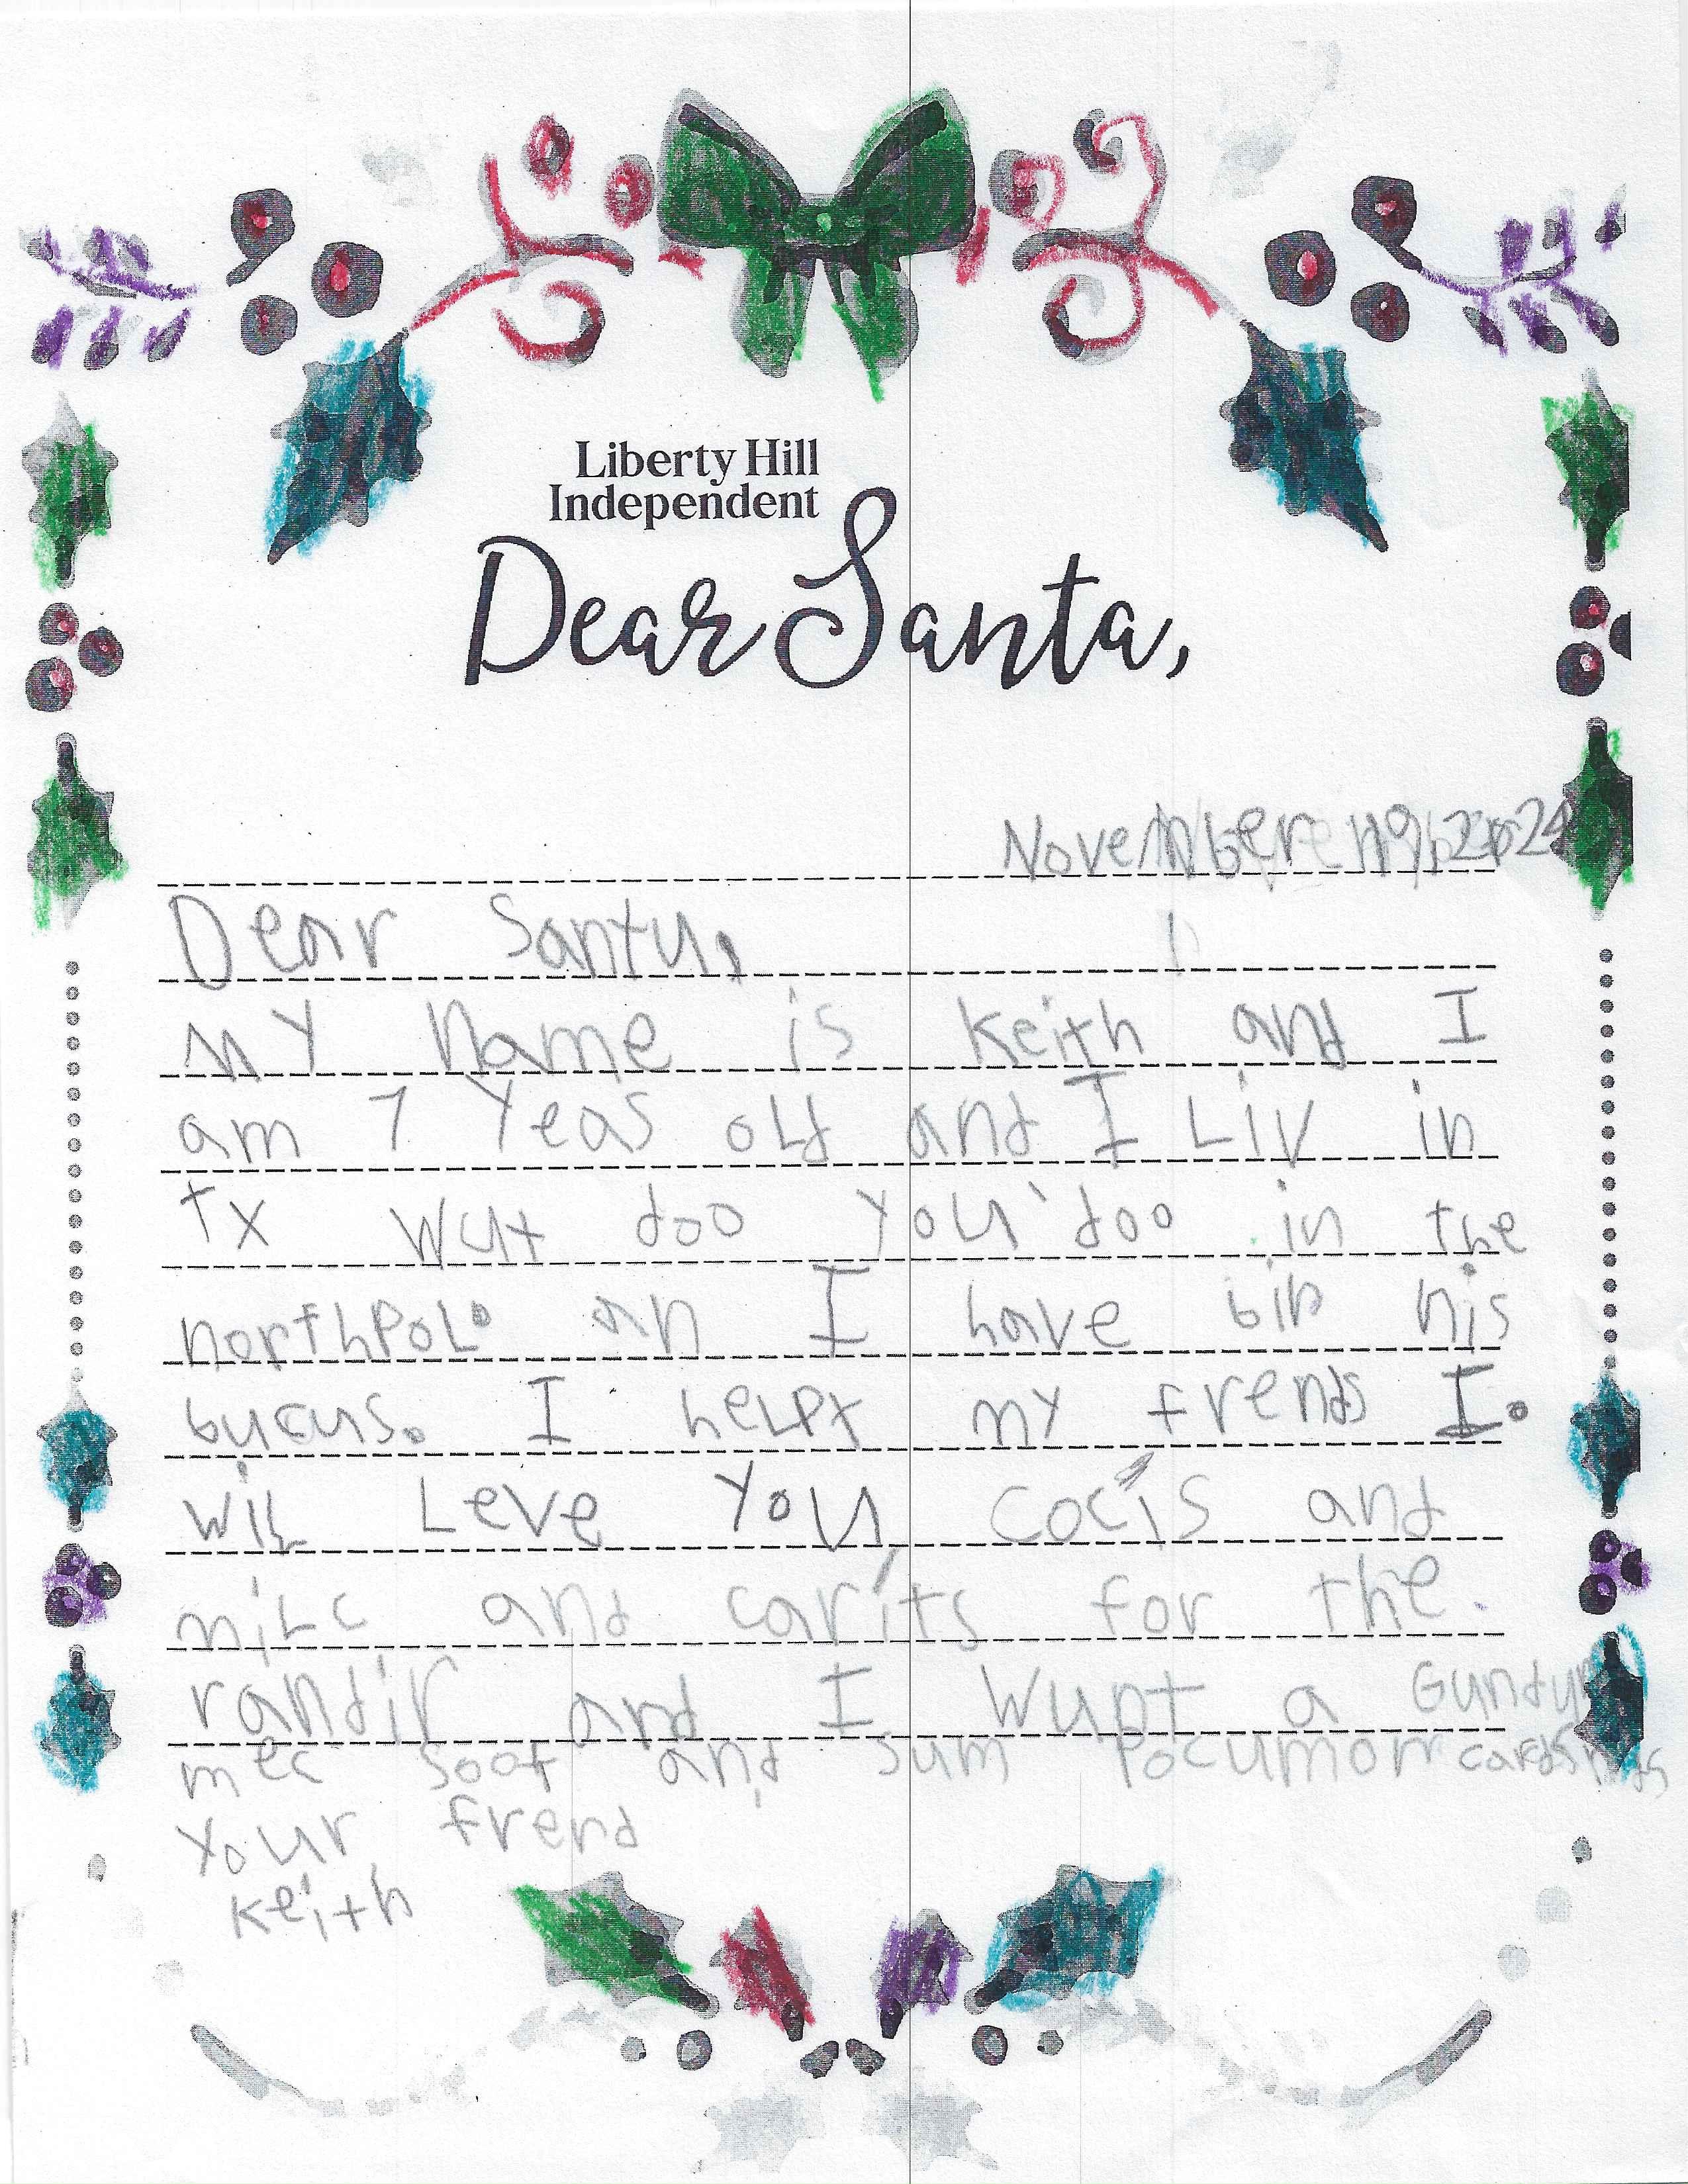 Liberty Hill
Independent
Dear Santa,
November 19, 2024
Dear Santu,
my name is Keith and I
am 7 Yeas old and I Liv in
Tx wut doo you doo in the
northpole an I have bin nis
bucus. I helpt my frends I.
wil Leve you cocis and
milc and carits for the
randir and I wunt a Gundum
mec soot and sum Pocumon cards
Your frend
Keith